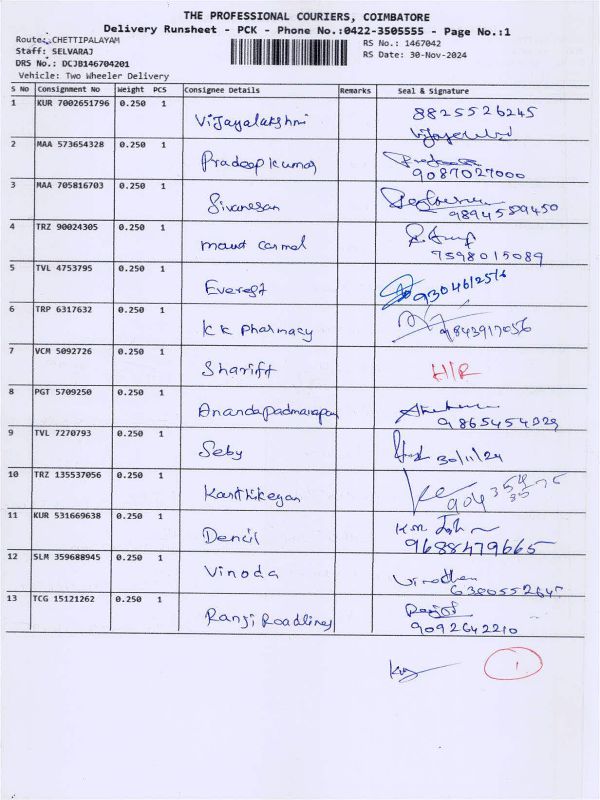 THE PROFESSIONAL COURIERS, COIMBATORE
Delivery Runsheet - PCK - Phone No.:0422-3505555 - Page No.:1
Route: CHETTIPALAYAM
Staff: SELVARAJ
DRS No.: DCJB146704201
Vehicle: Two Wheeler Delivery
RS No.: 1467042
RS Date: 30-Nov-2024
S No Consignment No Weight PCS Consignee Details Remarks Seal & Signature
1 KUR 7002651796 0.250 1 Vijayalakshmi 8825526245
2 MAA 573654328 0.250 1 Pradeep kumar 9087027000
3 MAA 705816703 0.250 1 Sivanesan 9894589450
4 TRZ 90024305 0.250 1 mount carmel 7598015089
5 TVL 4753795 0.250 1 Everest
6 TRP 6317632 0.250 1 KK Pharmacy 9843917056
7 VCM 5092726 0.250 1 Shariff H/R
8 PGT 5709250 0.250 1 Anandapadmarapan
9 TVL 7270793 0.250 1 Seby 30/11/24
10 TRZ 135537056 0.250 1 Karthikeyan
11 KUR 531669638 0.250 1 Dencil 9688479665
12 SLM 359688945 0.250 1 Vinoda Vinodha
13 TCG 15121262 0.250 1 Ranji Roadlines 9092642210
1